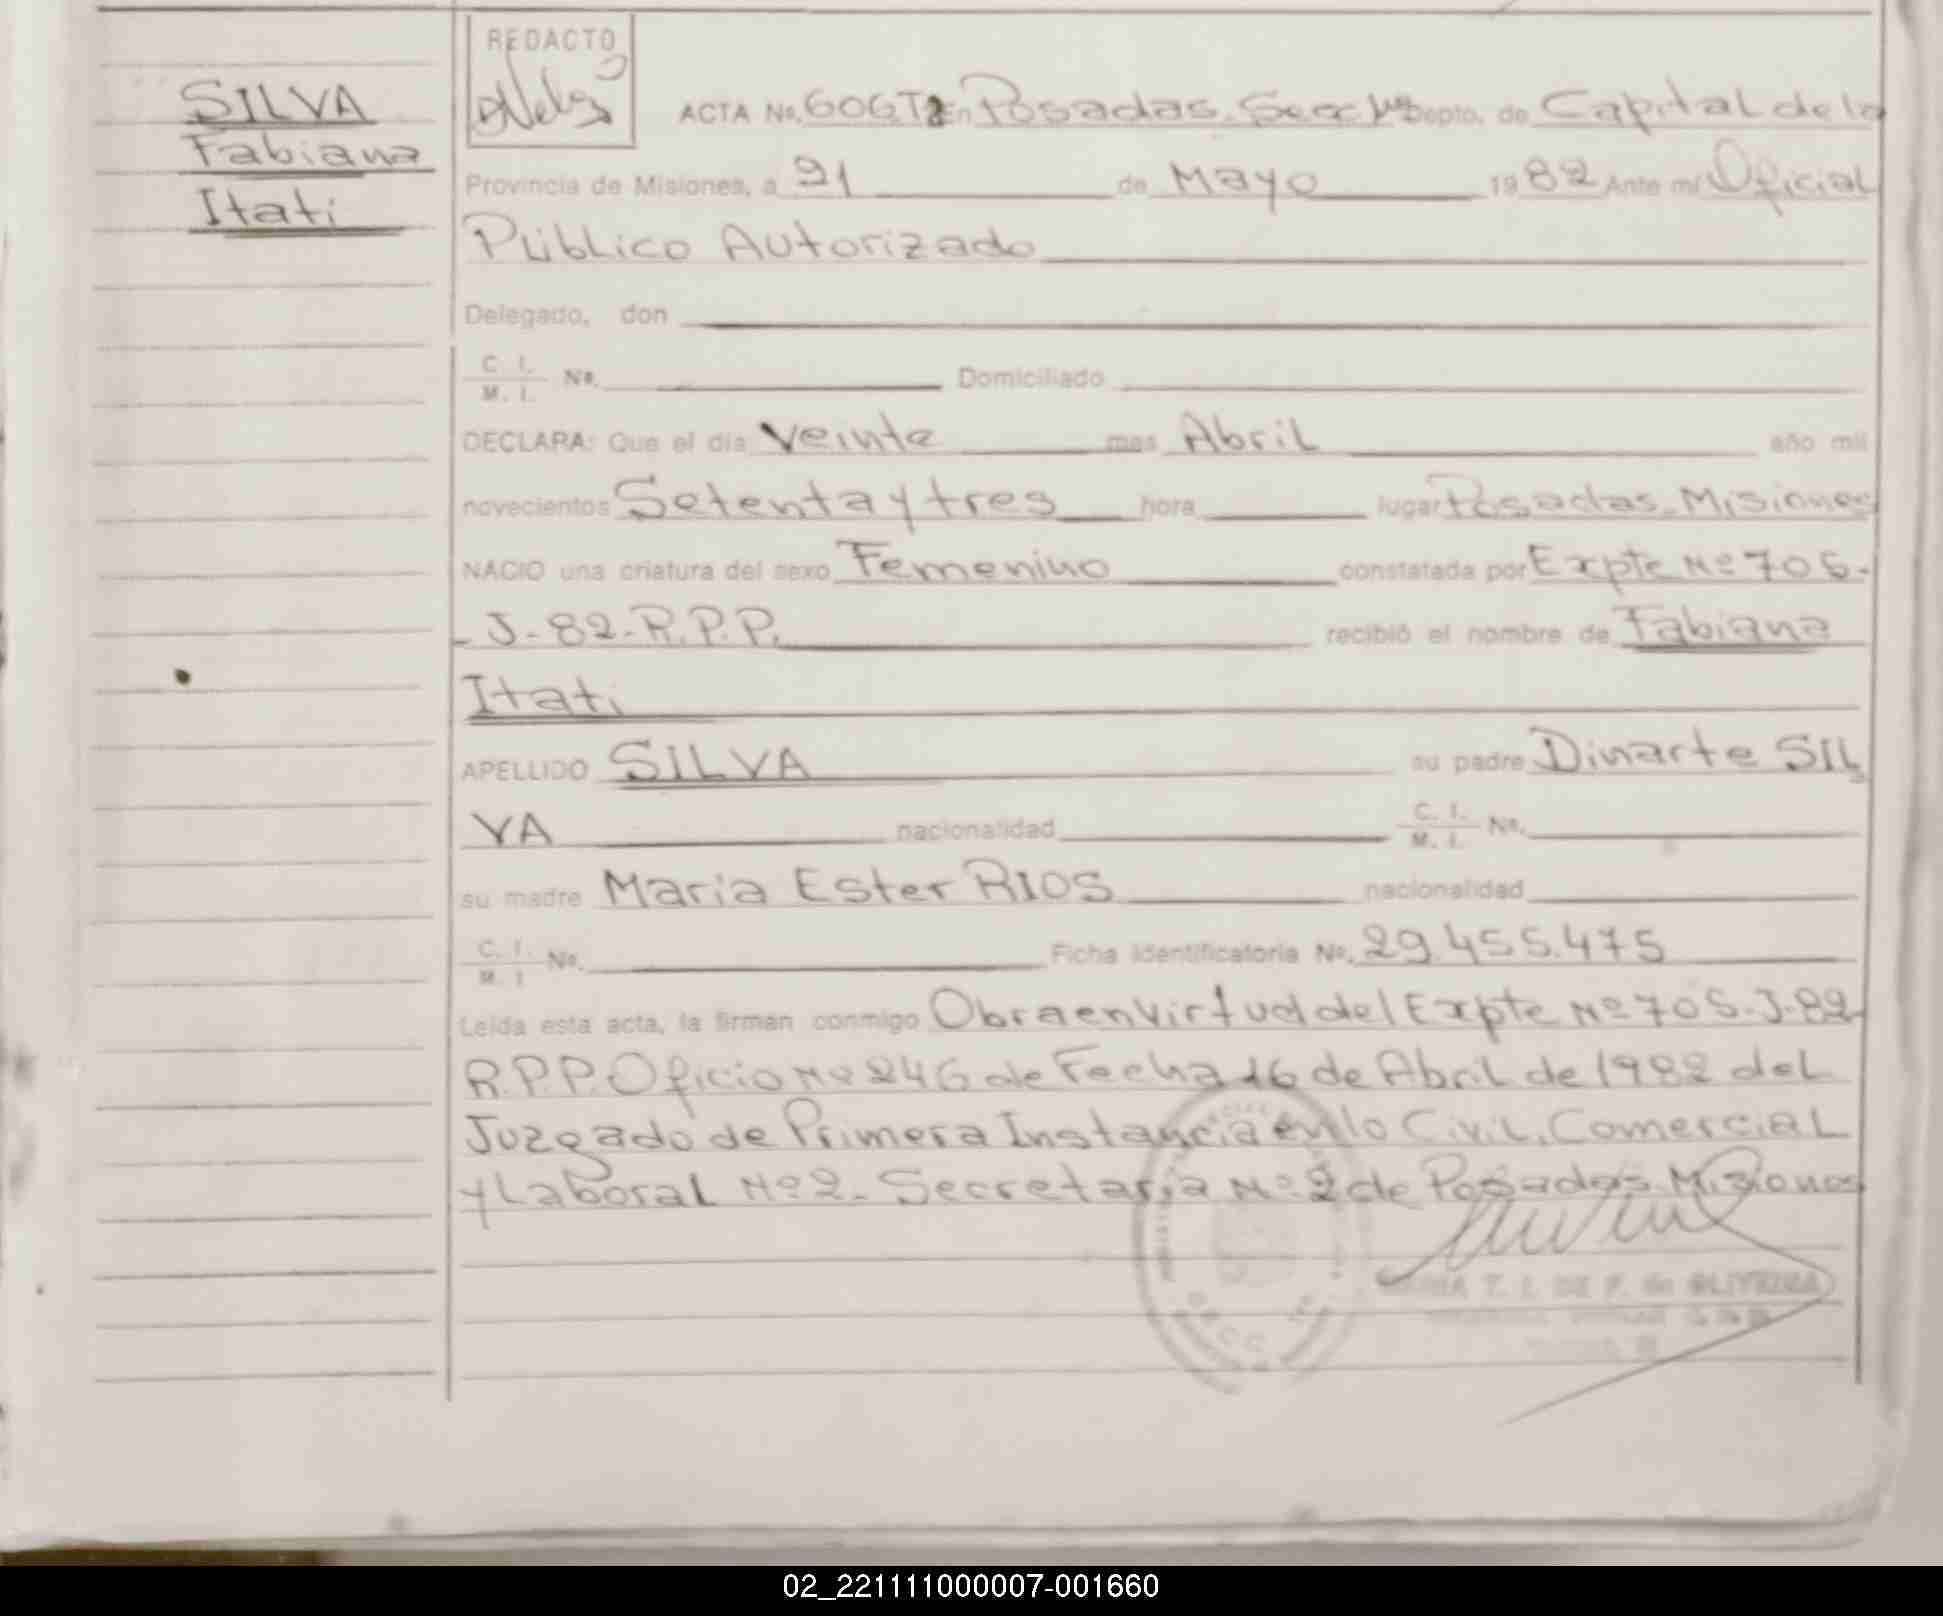 SILVA
Fabiana
Itati
REDACTO
ACTA No. 606 T2 En Posadas, Secc Depto. de Capital de la
Provincia de Misiones, a 21 de Mayo 1982 Ante mí Oficial
Público Autorizado
Delegado, don
C. I. / M. I. No. Domiciliado
DECLARA: Que el día Veinte mes Abril año mil
novecientos Setenta y tres hora lugar Posadas-Misiones
NACIO una criatura del sexo Femenino constatada por Expte Nº 705-
-J-82-R.P.P. recibió el nombre de Fabiana
Itati
APELLIDO SILVA su padre Dinarte SIL
VA nacionalidad C. I. / M. I. No.
su madre Maria Ester RIOS nacionalidad
C. I. / M. I. No. Ficha Identificatoria No. 29.455.475
Leída esta acta, la firman conmigo Obra en virtud del Expte Nº 705-J-82-
R.P.P. Oficio Nº 246 de Fecha 16 de Abril de 1982 del
Juzgado de Primera Instancia en lo Civil, Comercial
y Laboral Nº 2- Secretaria Nº 2 de Posadas Misiones
T. I. DE F. de OLIVEIRA
02_221111000007-001660